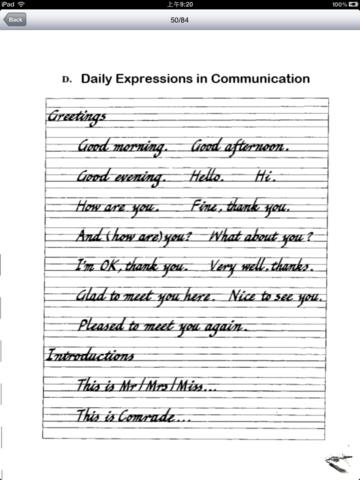 iPad 上午9:20 100%
Back 50/84
D. Daily Expressions in Communication
Greetings
Good morning. Good afternoon.
Good evening. Hello. Hi.
How are you. Fine, thank you.
And (how are) you? What about you?
I'm OK, thank you. Very well, thanks.
Glad to meet you here. Nice to see you.
Pleased to meet you again.
Introductions
This is Mr/Mrs/Miss...
This is Comrade...